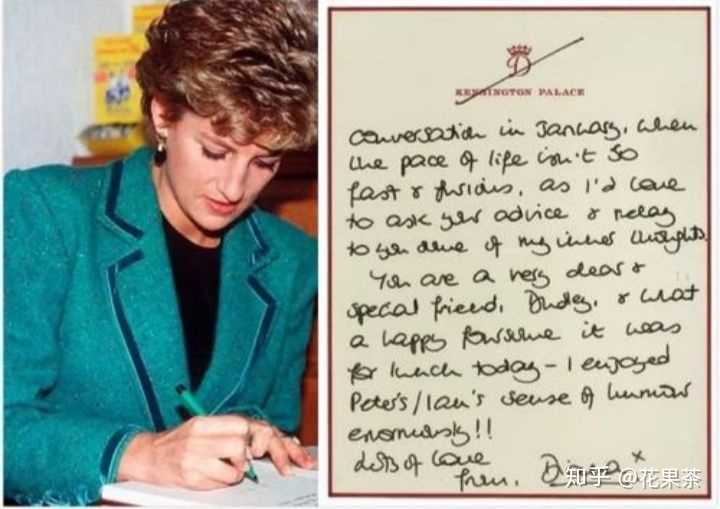 D
KENSINGTON PALACE
conversation in January, when
the pace of life isn't so
fast & furious, as I'd love
to ask your advice & relay
to you some of my inner thoughts.
You are a very dear &
special friend, Dudley, & what
a happy foursome it was
for lunch today - I enjoyed
Peter's/Ian's sense of humour
enormously!!
Lots of love
from, Diana x
知乎 @花果茶